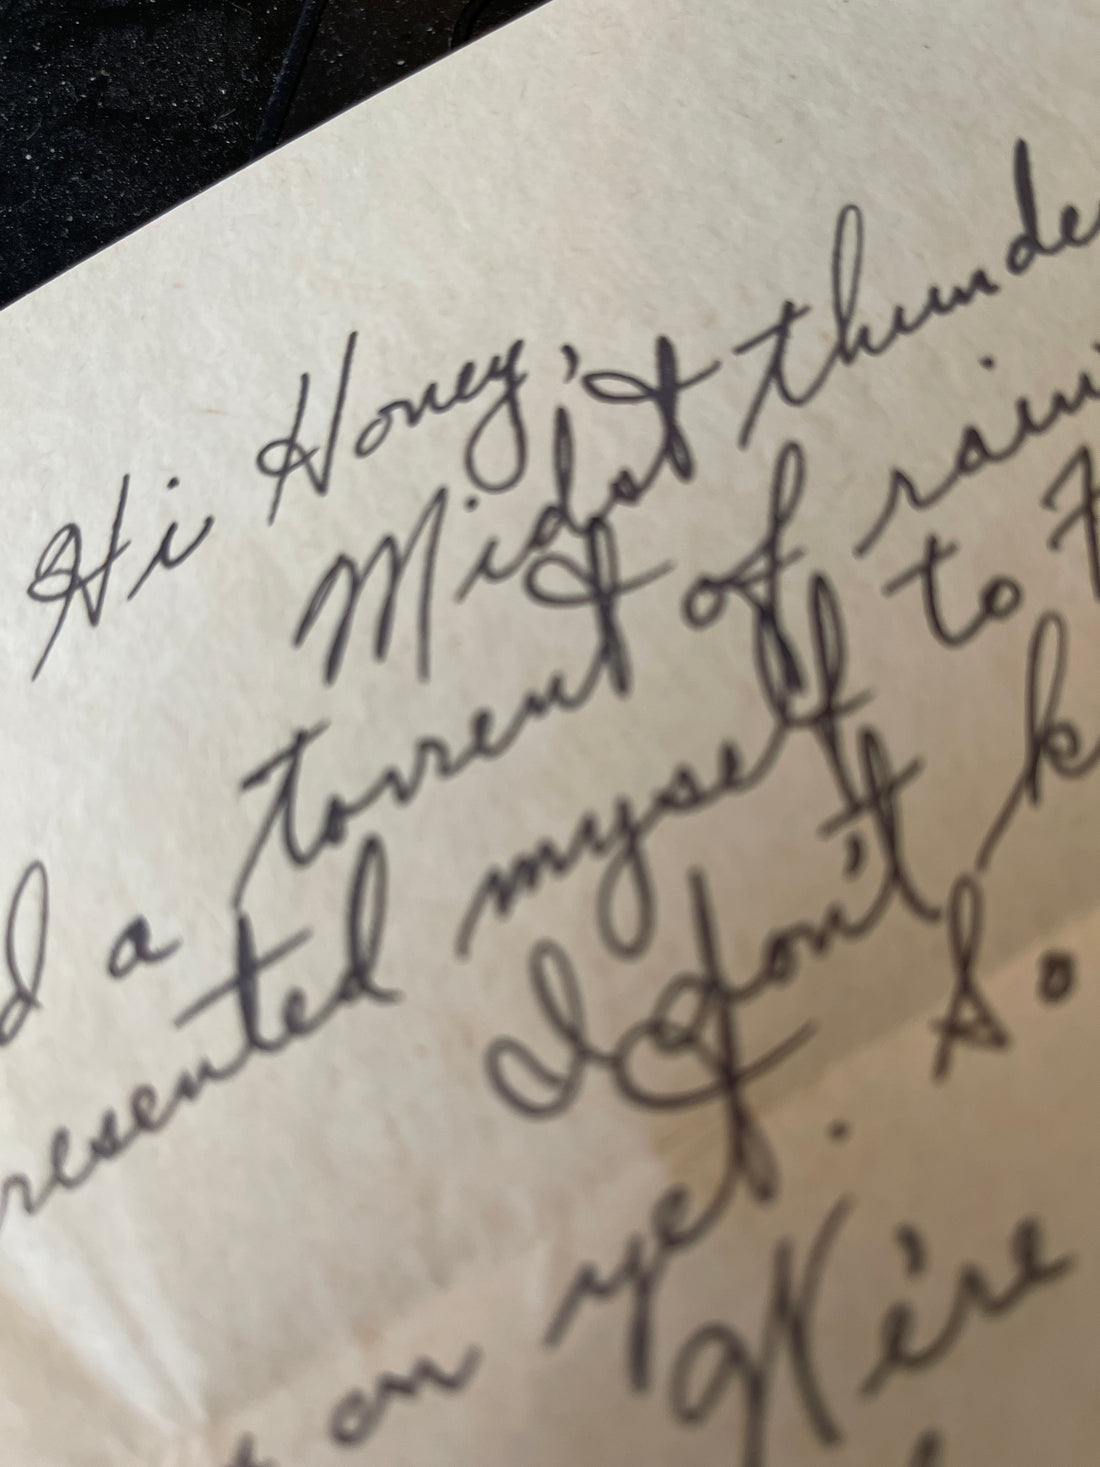 Hi Honey,
Midst thunde
a torrent of rain
resented myself to
I don't k
on yet. So
We're